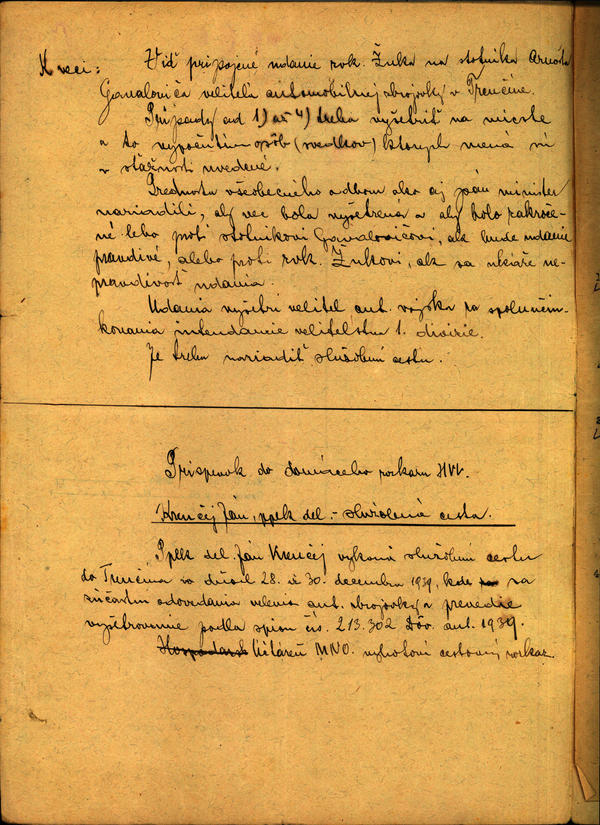 K veci: Viď pripojené udanie rok. Žuka na stotníka Arnošta
Gavaloviča veliteľa automobilnej zbrojovky v Trenčíne.
Prípady od 1) až 4) treba vyšetriť na mieste
a to vypočutím osôb (svedkov) ktorých mená sú
v sťažnosti uvedené.
Prednosta všeobecného odboru ako aj pán minister
nariadili, aby vec bola vyšetrená a aby bolo zakroče-
né lebo proti stotníkovi Gavalovičovi, ak bude udanie
pravdivé, alebo proti rok. Žukovi, ak sa ukáže ne-
pravdivosť udania.
Udania vyšetrí veliteľ aut. vojska za spoluúčin-
kovania intendancie veliteľstva 1. divízie.
Je treba nariadiť služobnú cestu.
Príspevok do domáceho rozkazu HVV.
Krenčej Ján, pplk del. - služobná cesta.
Pplk del. Ján Krenčej vykoná služobnú cestu
do Trenčína vo dňoch 28. až 30. decembra 1939, kde sa
súčastní odovzdania velenia aut. zbrojovky a prevedie
vyšetrovanie podľa spisu čís. 213.302 Dôv. aut. 1939.
Hospodársk Účtáreň MNO. vyhotoví cestovný rozkaz.